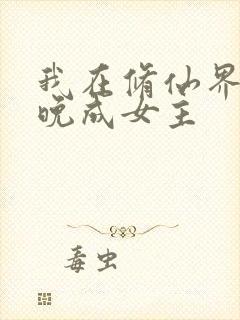 我在修仙界
晚成女主
毒虫